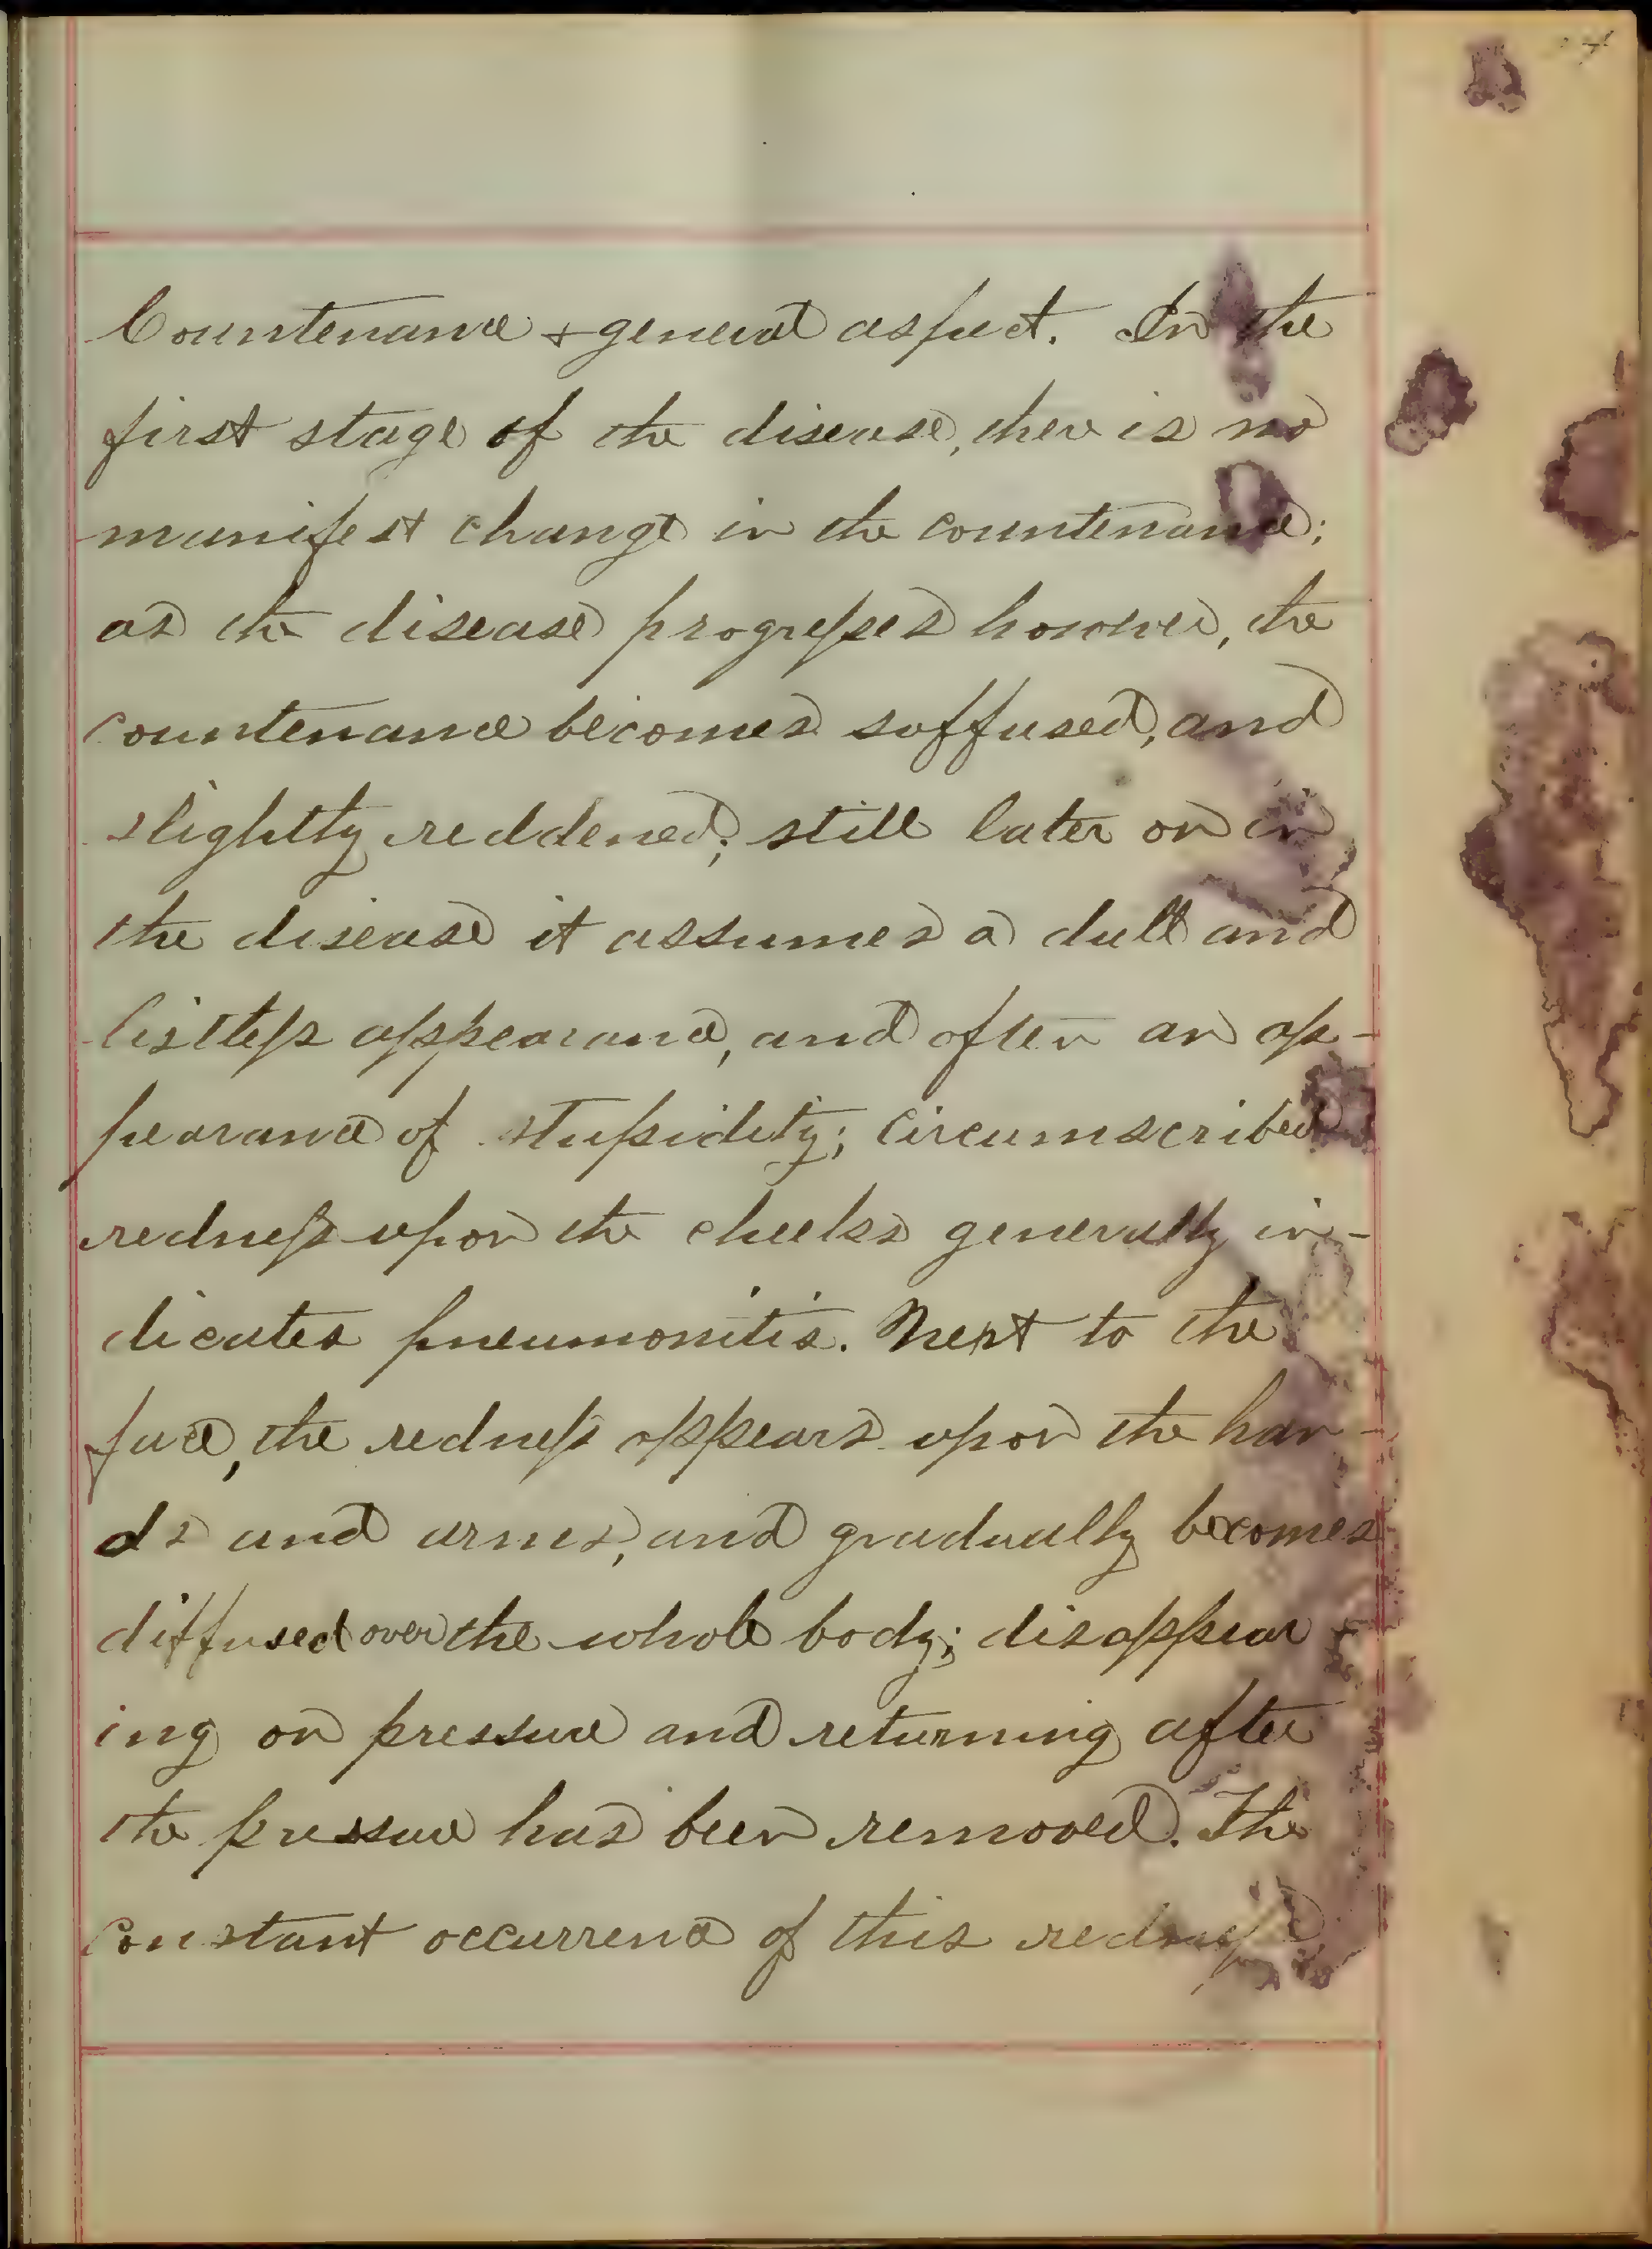 Countenance & general aspect. In the
first stage of the disease, there is no
manifest change in the countenance;
as the disease progresses however, the
countenance becomes suffused, and
slightly reddened; still later on in
the disease it assumes a dull and
listless appearance, and often an ap-
pearance of stupidity; circumscribed
redness upon the cheeks generally in-
dicates pneumonitis. Next to the
face, the redness appears upon the han-
ds and arms, and gradually becomes
diffused over the whole body; disappear-
ing on pressure and returning after
the pressure has been removed. The
constant occurrence of this redness